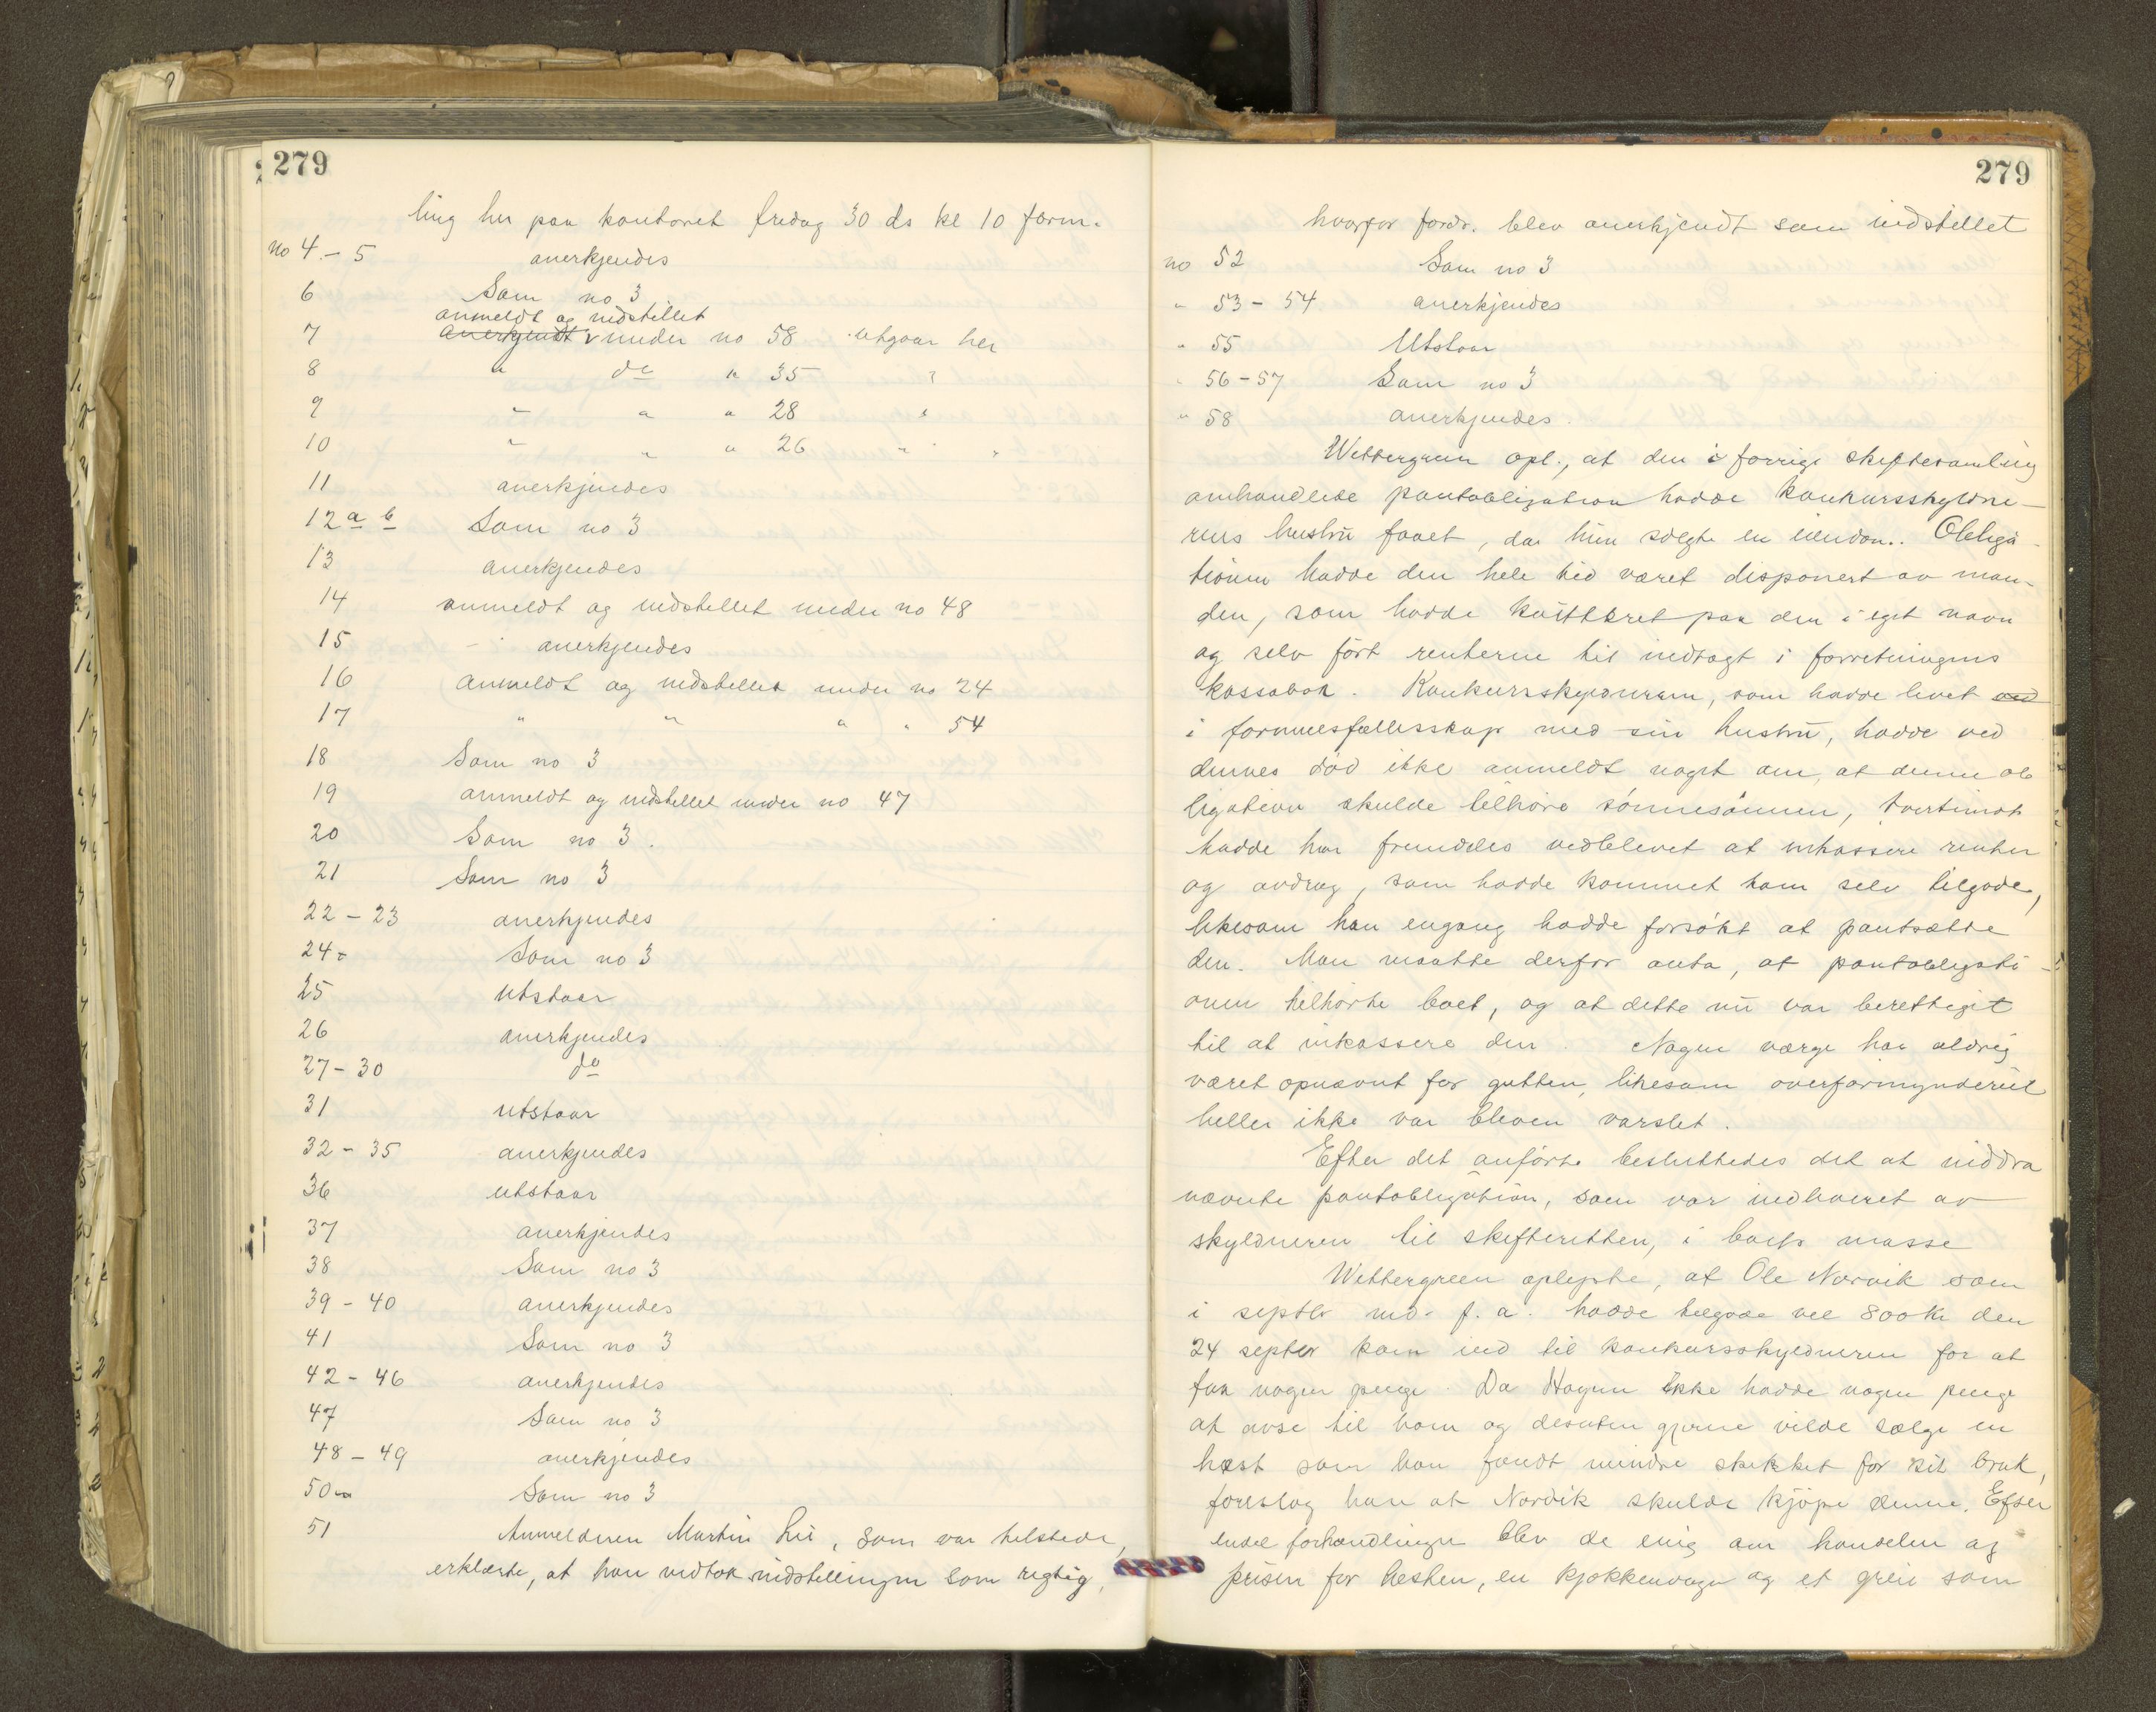 279
ling her paa kontoret fredag 30 ds kl 10 form.
no 4 - 5 anerkjendes
6 Som no 3
anmeldt og indstillet
7 anerkjendt under no 58 utgaar her
8 " do " 35 "
9 " " " 28 "
10 " " " 26 " "
11 anerkjendes
12 a b Som no 3
13 anerkjendes
14 anmeldt og indstillet under no 48
15 anerkjendes
16 anmeldt og indstillet under no 24
17 " " " " 54
18 Som no 3
19 anmeldt og indstillet under no 47
20 Som no 3.
21 Som no 3
22 - 23 anerkjendes
24 Som no 3
25 utstaar
26 anerkjendes
27 - 30 do
31 utstaar
32 - 35 anerkjendes
36 utstaar
37 anerkjendes
38 Som no 3
39 - 40 anerkjendes
41 Som no 3
42 - 46 anerkjendes
47 Som no 3
48 - 49 anerkjendes
50 Som no 3
51 Anmelderen Martin Lie, som var tilstede,
erklærte, at han vedtok indstillingen som rigtig,
279
hvorfor fordr. blev anerkjendt som indstillet
no 52 Som no 3
" 53 - 54 anerkjendes
" 55 Utstaar
" 56 - 57 Som no 3
" 58 anerkjendes.
Wettergreen opl., at den i forrige skiftesamling
omhandlede pantobligation hadde konkursskyldne-
rens hustru faaet, da hun solgte en eiendom. Obliga-
tionen hadde den hele tid været disponert av man-
den, som hadde kvitteret paa den i eget navn
og selv ført renterne til indtægt i forretningens
kassabok. Konkursskyldneren, som hadde levet ved
i formuesfællesskap med sin hustru, hadde ved
dennes død ikke anmeldt noget om, at denne ob
ligation skulde tilhøre sønnesønnen, tvertimot
hadde han fremdeles vedblevet at inkassere renter
og avdrag, som hadde kommet ham selv tilgode,
likesom han engang hadde forsøkt at pantsætte
den. Man maatte derfor anta, at pantobligati-
onen tilhørte boet, og at dette nu var berettiget
til at inkassere den. Nogen værge har aldrig
været opnævnt for gutten, likesom overformynderiet
heller ikke var bleven varslet.
Efter det anførte besluttedes det at inddra
nævnte pantobligation, som var indleveret av
skyldneren til skifteretten, i boets masse
Wettergreen oplyste, at Ole Norvik som
i septbr md. f. a. hadde tilgode vel 800 Kr den
24 septbr kom ind til konkursskyldneren for at
faa nogen penge. Da Hagen ikke hadde nogen penge
at avse til ham og desuten gjerne vilde sælge en
hest som han fandt mindre skikket for sit bruk,
foreslog han at Norvik skulde kjøpe denne. Efter
endel forhandlinger blev de enig om handelen og
prisen for hesten, en kjøkkenvogn og et greie som